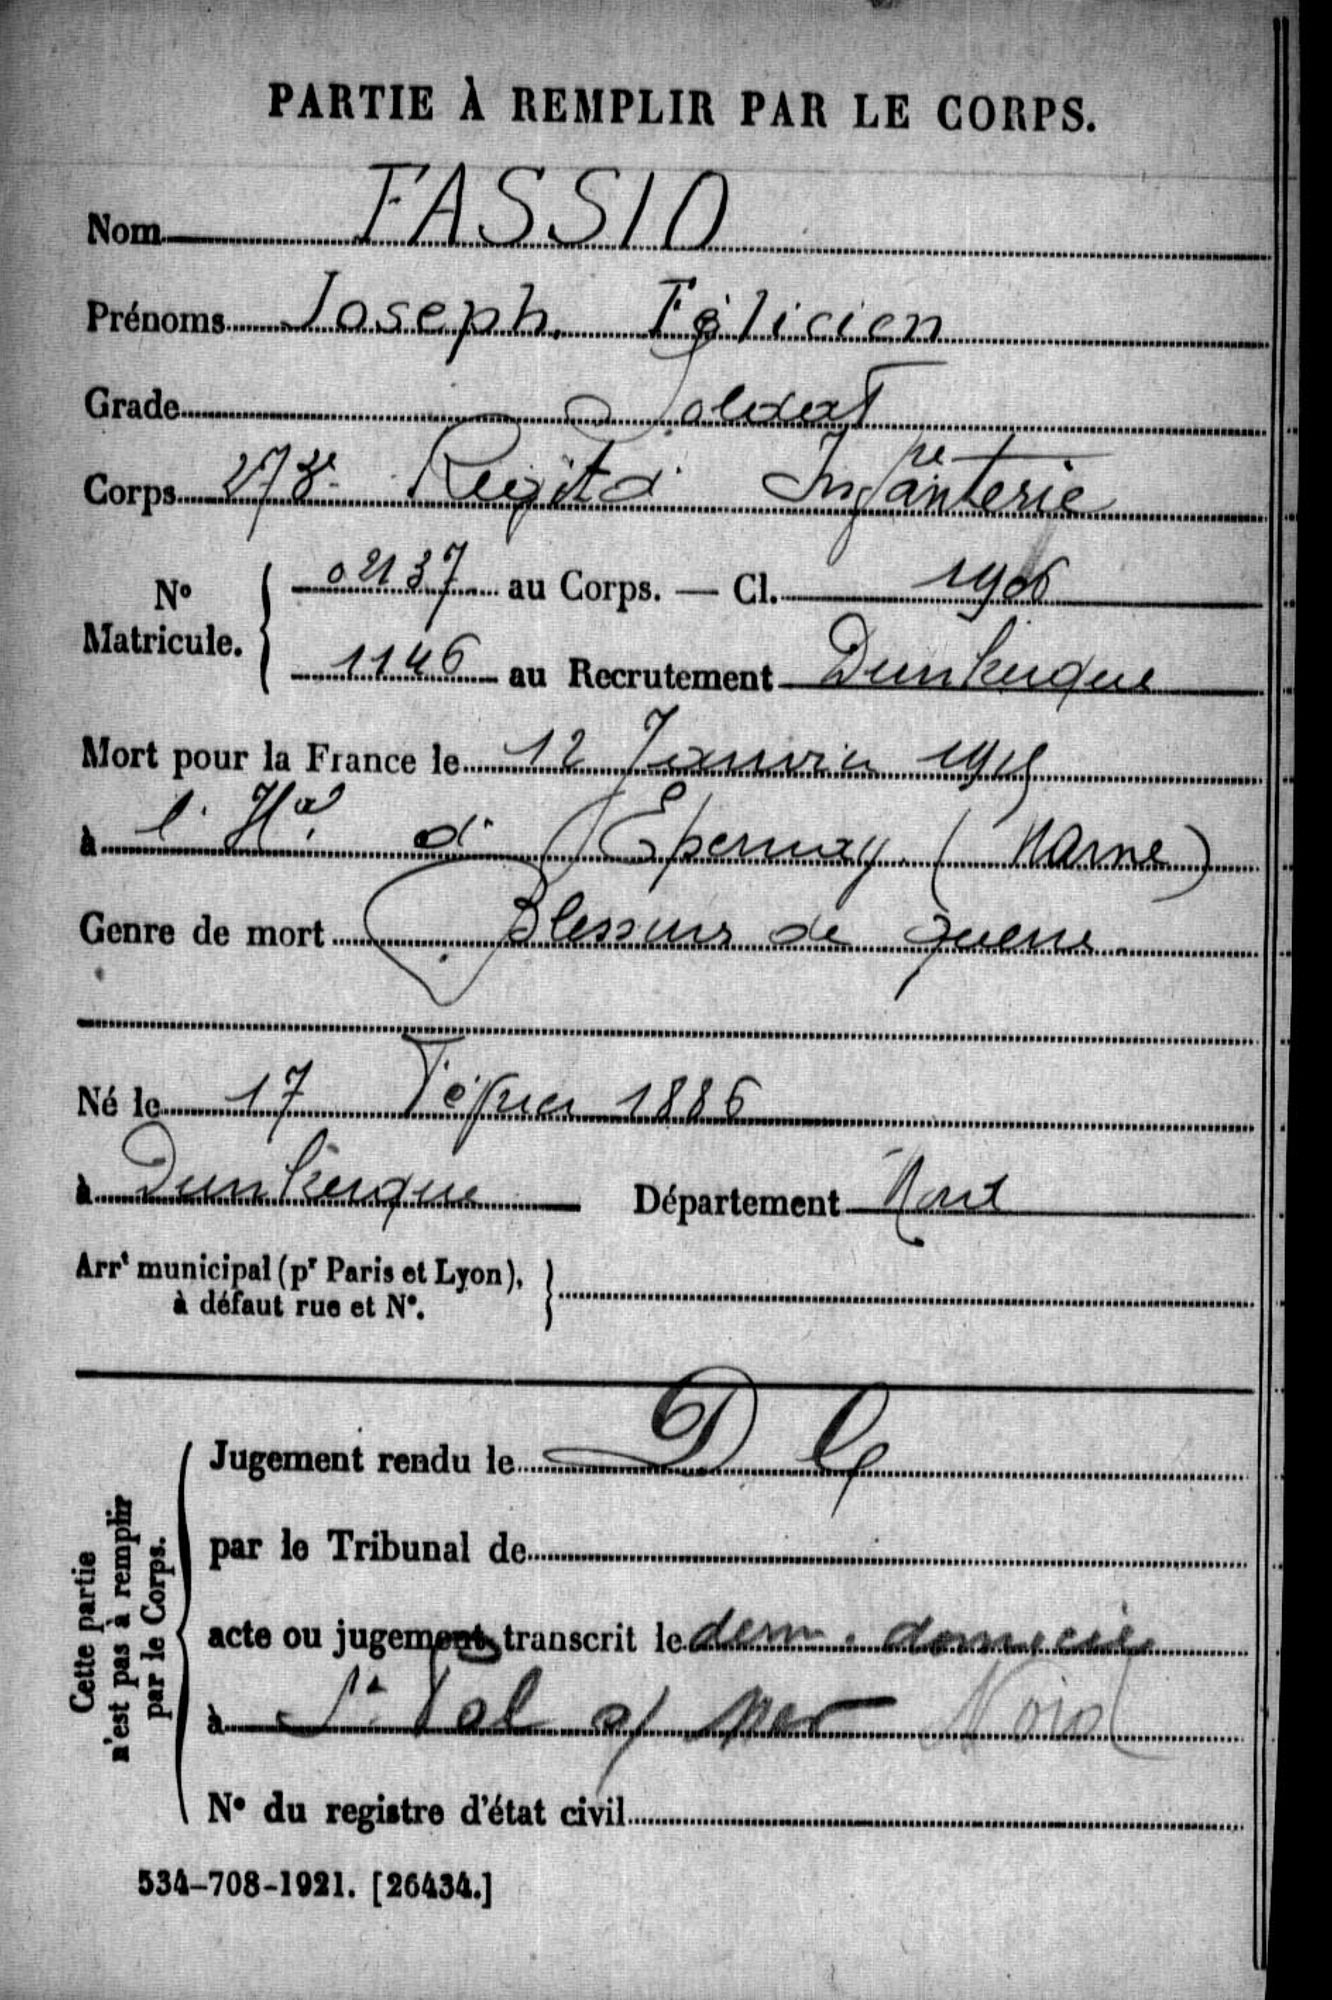 PARTIE À REMPLIR PAR LE CORPS.
Nom FASSIO
Prénoms Joseph, Félicien
Grade Soldat
Corps 273e Regit d' Infanterie
N° Matricule. 02137 au Corps. — Cl. 1906
1146 au Recrutement Dunkerque
Mort pour la France le 12 Janvier 1915
à l' Hal d' Epernay (Marne)
Genre de mort Blessures de guerre
Né le 17 Février 1886
à Dunkerque Département Nord
Arrt municipal (pr Paris et Lyon),
à défaut rue et N°.
Cette partie
n'est pas à remplir
par le Corps.
Jugement rendu le D
par le Tribunal de
acte ou jugement transcrit le dern. domicile
à St Pol s/ Mer Nord
N° du registre d'état civil
534-708-1921. [26434.]